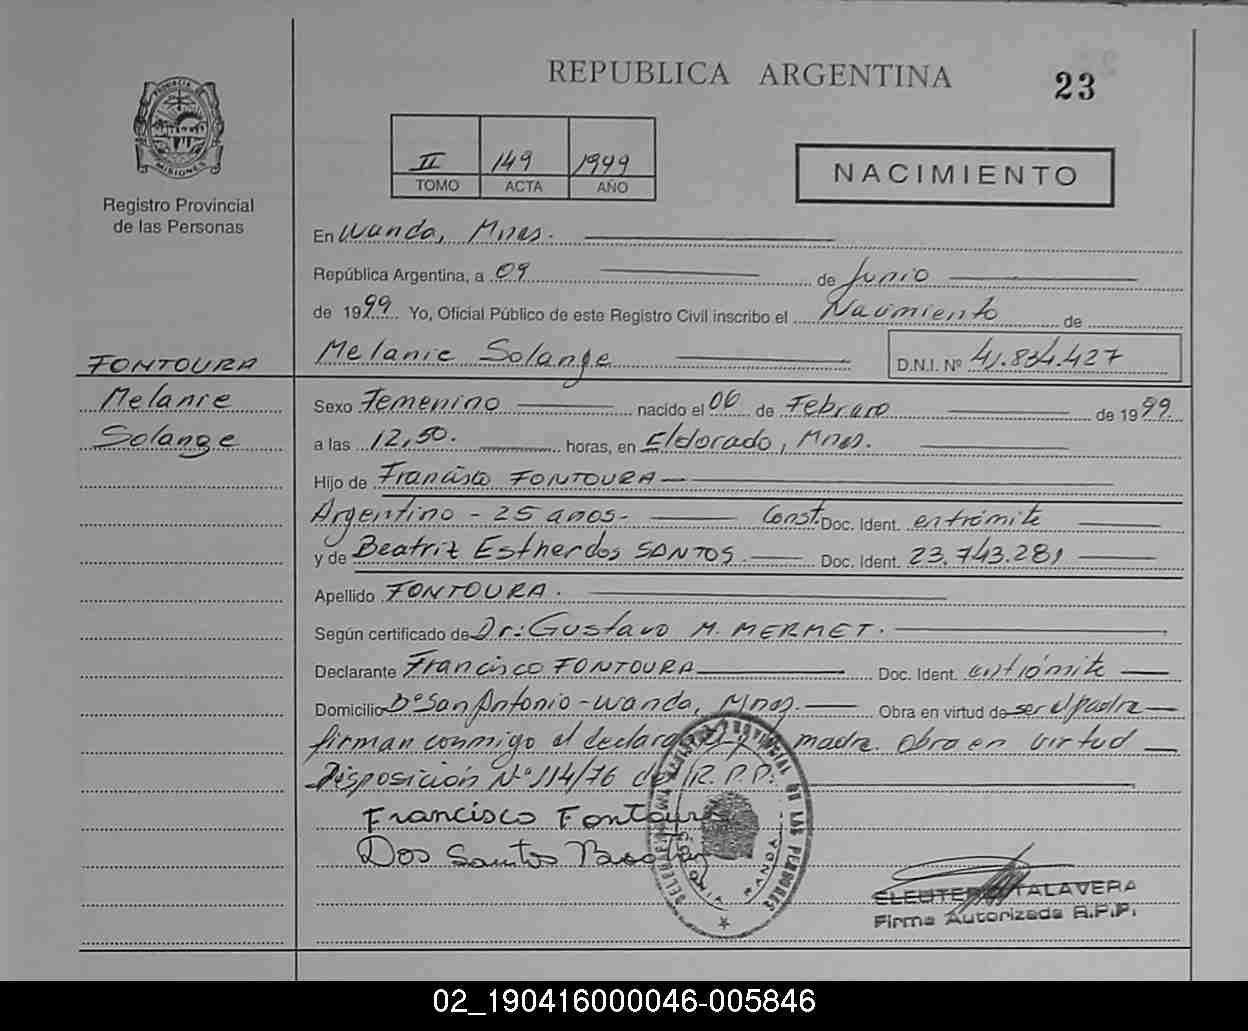 REPUBLICA ARGENTINA
23
PROVINCIA DE MISIONES
Registro Provincial
de las Personas
II 149 1999
TOMO ACTA AÑO
NACIMIENTO
En Wanda, Mnes.
República Argentina, a 09 de Junio
de 1999 Yo, Oficial Público de este Registro Civil inscribo el Nacimiento de
Melanie Solange D.N.I. Nº 41.834.427
FONTOURA
Melanie
Solange
Sexo Femenino nacido el 06 de Febrero de 1999
a las 12,50. horas, en Eldorado, Mnes.
Hijo de Francisco FONTOURA
Argentino - 25 años - Const. Doc. Ident. en trámite
y de Beatriz Esther dos SANTOS. Doc. Ident. 23.743.281
Apellido FONTOURA.
Según certificado de Dr: Gustavo M. MERMET.
Declarante Francisco FONTOURA Doc. Ident. en trámite
Domicilio Bº San Antonio - Wanda, Mnes. Obra en virtud de ser el padre
firman conmigo el declarante y madre. Obra en virtud
Disposición Nº 114/76 del R.P.P.
Francisco Fontoura
Dos Santos
WANDA
ELEUTERIO TALAVERA
Firma Autorizada R.P.P.
02_190416000046-005846